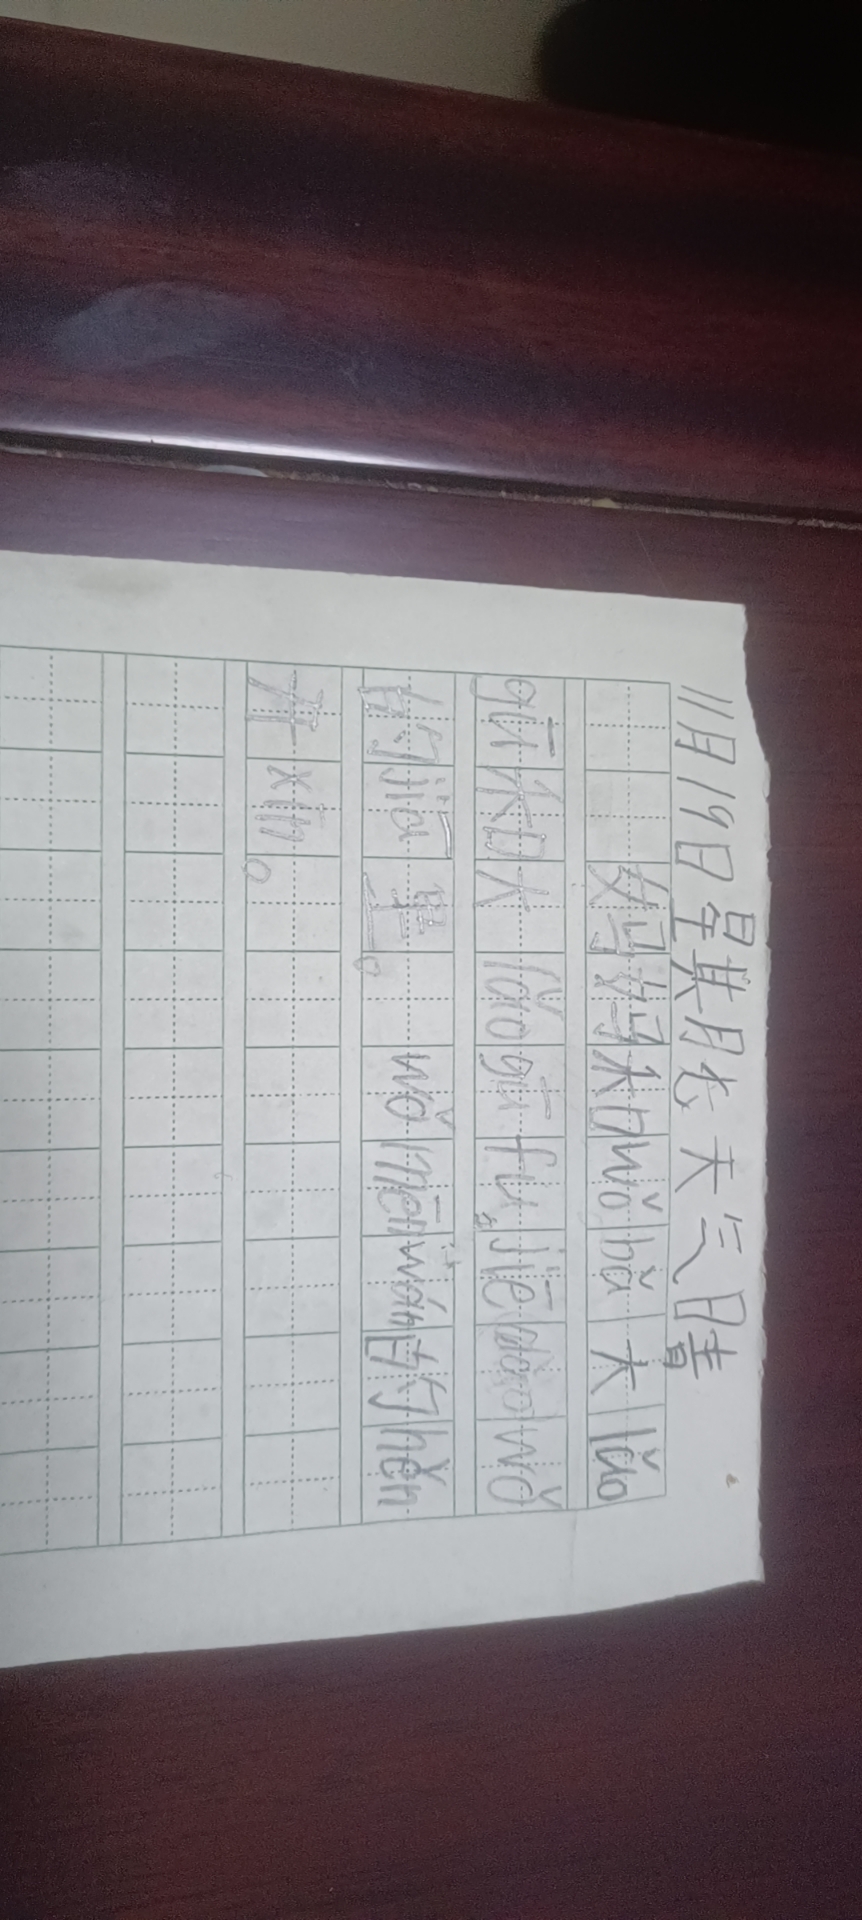 11月19日星其月七天气晴
妈妈和wǒ bǎ大lǎo
gū和大lǎo gū fu jiē dào wǒ
的jiā里。wǒ mēn wán的hěn
开xīn。